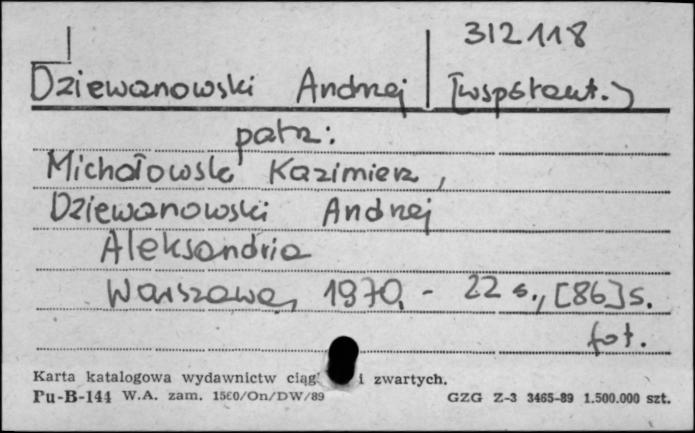 312118
Dziewanowski Andrzej (współaut.)
patrz:
Michałowski Kazimierz,
Dziewanowski Andrzej
Aleksandria
Warszawa, 1970. - 22 s., [86] s.
fot.
Karta katalogowa wydawnictw i zwartych.
Pu-B-144 W.A. zam. 1560/On/DW/89 GZG Z-3 3465-89 1.500.000 szt.